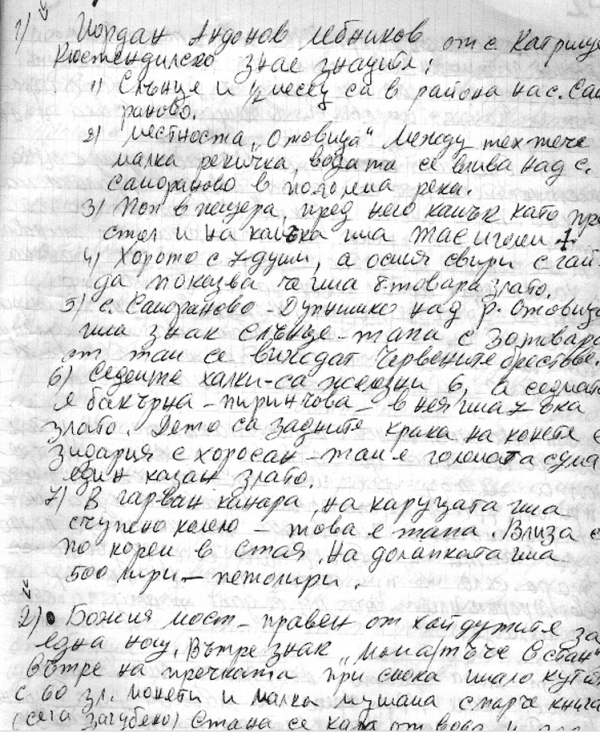 1) Йордан Андонов Лебников от с. Катрище
Кюстендилско знае знаците:
1) Слънце и месец са в района на с. Сапо
раново.
2) местноста „Отовица" Между тях тече
малка рекичка, водата се влива над с.
Сапораново в поголема река.
3) Поп в пещера, пред него камък като пре
стол и на камъка има
4) Хорото с 7 души, а осмия свири с гай
да показва че има 8 товара злато.
5) с. Сапораново - Дупнишко над р. Отовица
има знак Слънце - тапа с 30 товара
от там се виждат Червените брегове.
6) Седемте халки - са железни 6, а седмата
е бакърна - пиринчова - в нея има 7 ока
злато. Дето са задните крака на конете е
зидария с хоросан - там е голомата сума
един казан злато.
7) В гарван канара, на каруцата има
счупено колело - това е тапа. Влиза се
по корем в стая, на долапката има
500 лири - петолири.
2) Божия мост - правен от хайдутите за
една нощ. Вътре знак
Вътре на пречката при снока имало кутия
с 60 зл. монети и малка мушама старче книга
(сега загубено) Стана се от вода